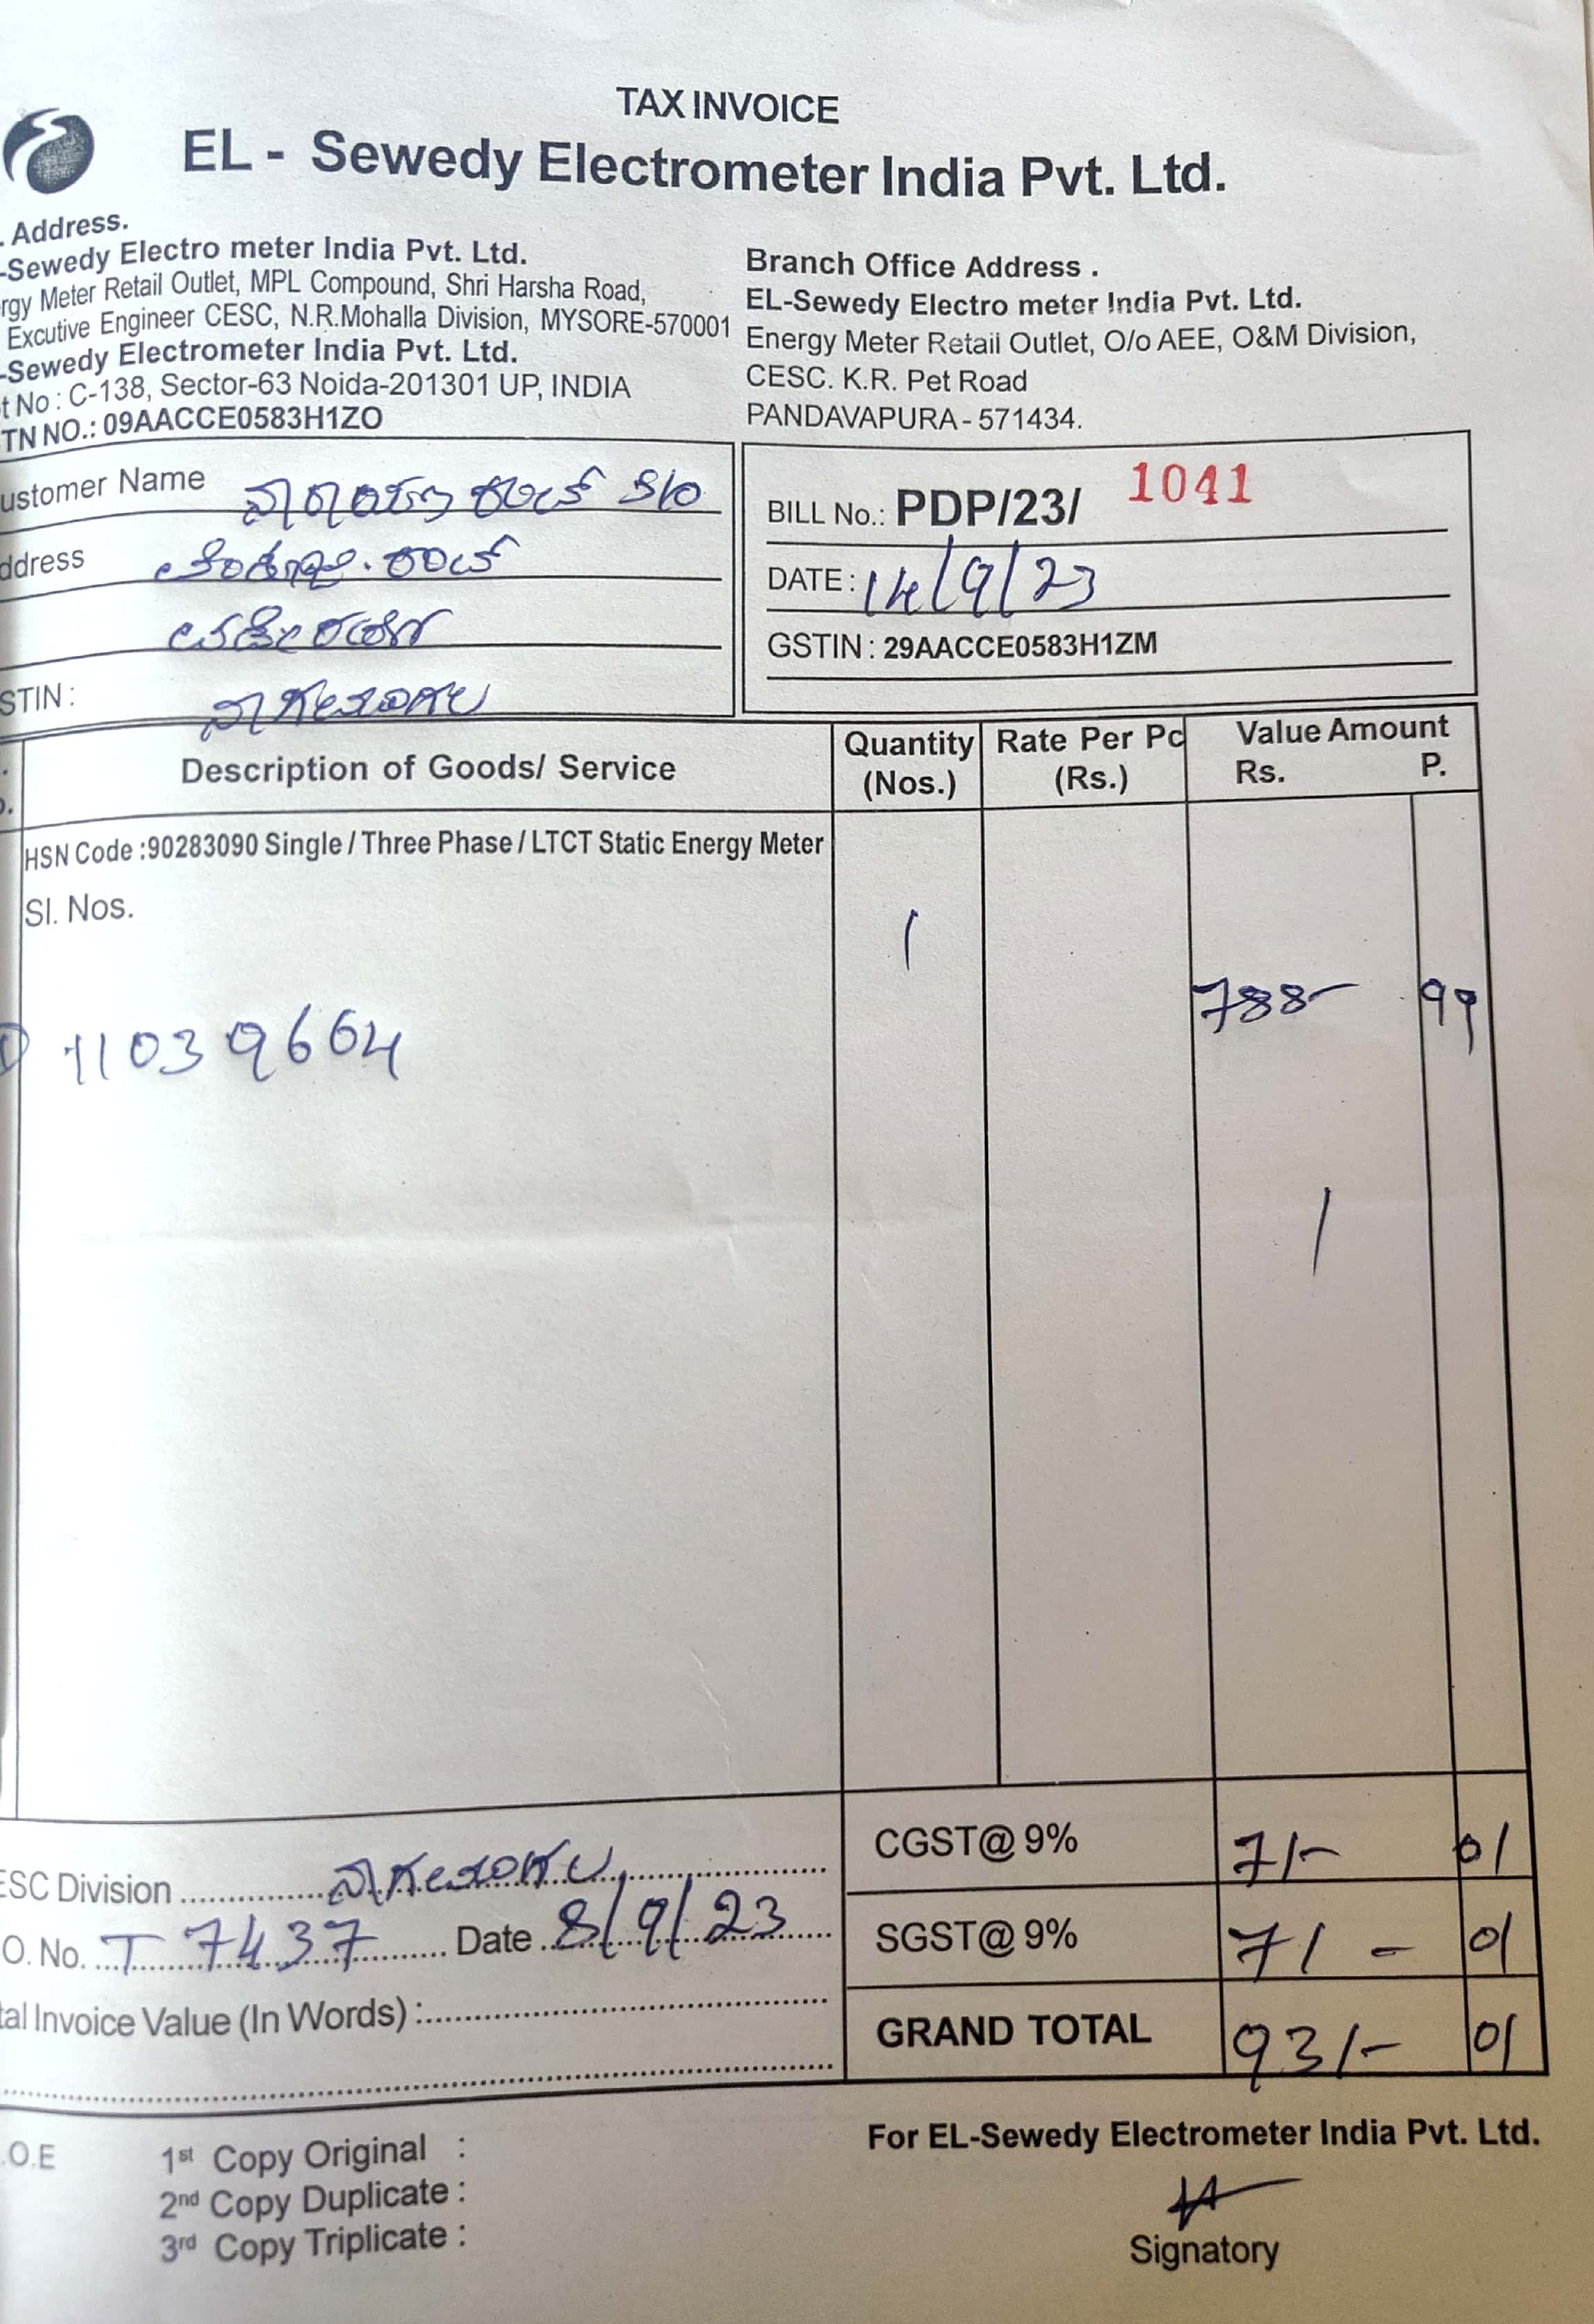 TAX INVOICE
EL - Sewedy Electrometer India Pvt. Ltd.
. Address.
-Sewedy Electro meter India Pvt. Ltd.
rgy Meter Retail Outlet, MPL Compound, Shri Harsha Road,
Excutive Engineer CESC, N.R.Mohalla Division, MYSORE-570001
-Sewedy Electrometer India Pvt. Ltd.
t No : C-138, Sector-63 Noida-201301 UP, INDIA
TN NO.: 09AACCE0583H1ZO
Branch Office Address .
EL-Sewedy Electro meter India Pvt. Ltd.
Energy Meter Retail Outlet, O/o AEE, O&M Division,
CESC. K.R. Pet Road
PANDAVAPURA - 571434.
ustomer Name S/O
ddress
STIN : ನಾಗಮಂಗಲ
BILL No.: PDP/23/ 1041
DATE : 14/9/23
GSTIN : 29AACCE0583H1ZM
Description of Goods/ Service
Quantity (Nos.)
Rate Per Pc (Rs.)
Value Amount
Rs. P.
HSN Code :90283090 Single / Three Phase / LTCT Static Energy Meter
Sl. Nos.
1
788- 99
11039664
ESC Division ನಾಗಮಂಗಲ
O. No. T 7437 Date 8/9/23
tal Invoice Value (In Words) :
CGST@ 9% 71- 01
SGST@ 9% 71 - 01
GRAND TOTAL 931- 01
.O.E
1st Copy Original :
2nd Copy Duplicate :
3rd Copy Triplicate :
For EL-Sewedy Electrometer India Pvt. Ltd.
Signatory